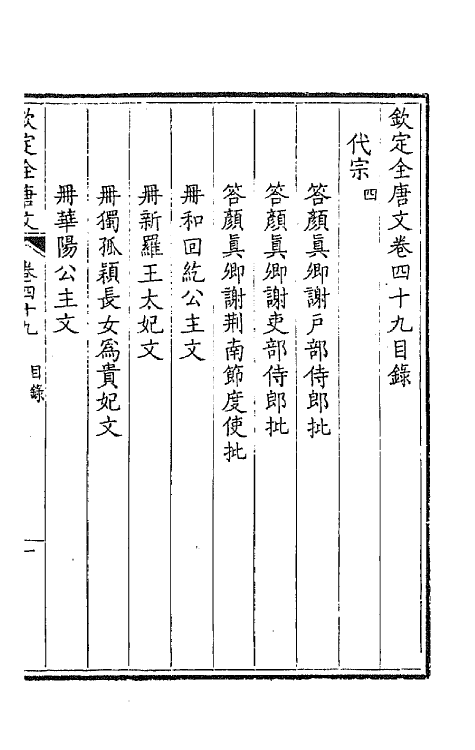 欽定全唐文卷四十九目錄
代宗 四
答顏眞卿謝戶部侍郎批
答顏眞卿謝吏部侍郎批
答顏眞卿謝荆南節度使批
冊和回紇公主文
冊新羅王太妃文
冊獨孤穎長女爲貴妃文
冊華陽公主文
欽定全唐文 卷四十九 目錄 一